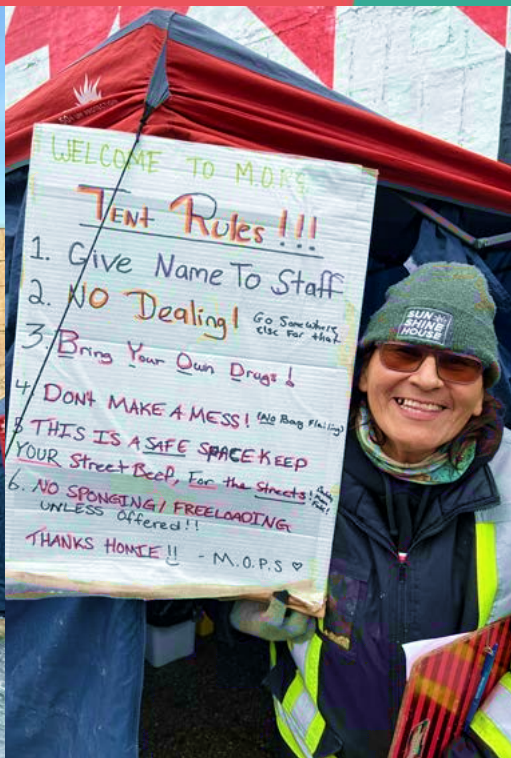 WELCOME TO M.O.P.S
TENT RULES!!!
1. Give Name To Staff
2. NO Dealing! Go Somewhere
else For that
3. Bring Your Own Drugs!
4. DON'T MAKE A MESS! (No Bag Flailing)
5 THIS IS A SAFE SPACE KEEP
YOUR Street Beef, For the Streets!
6. NO SPONGING/FREELOADING
UNLESS Offered!!
THANKS HOMIE!! - M.O.P.S ♡
SUN
SHINE
HOUSE